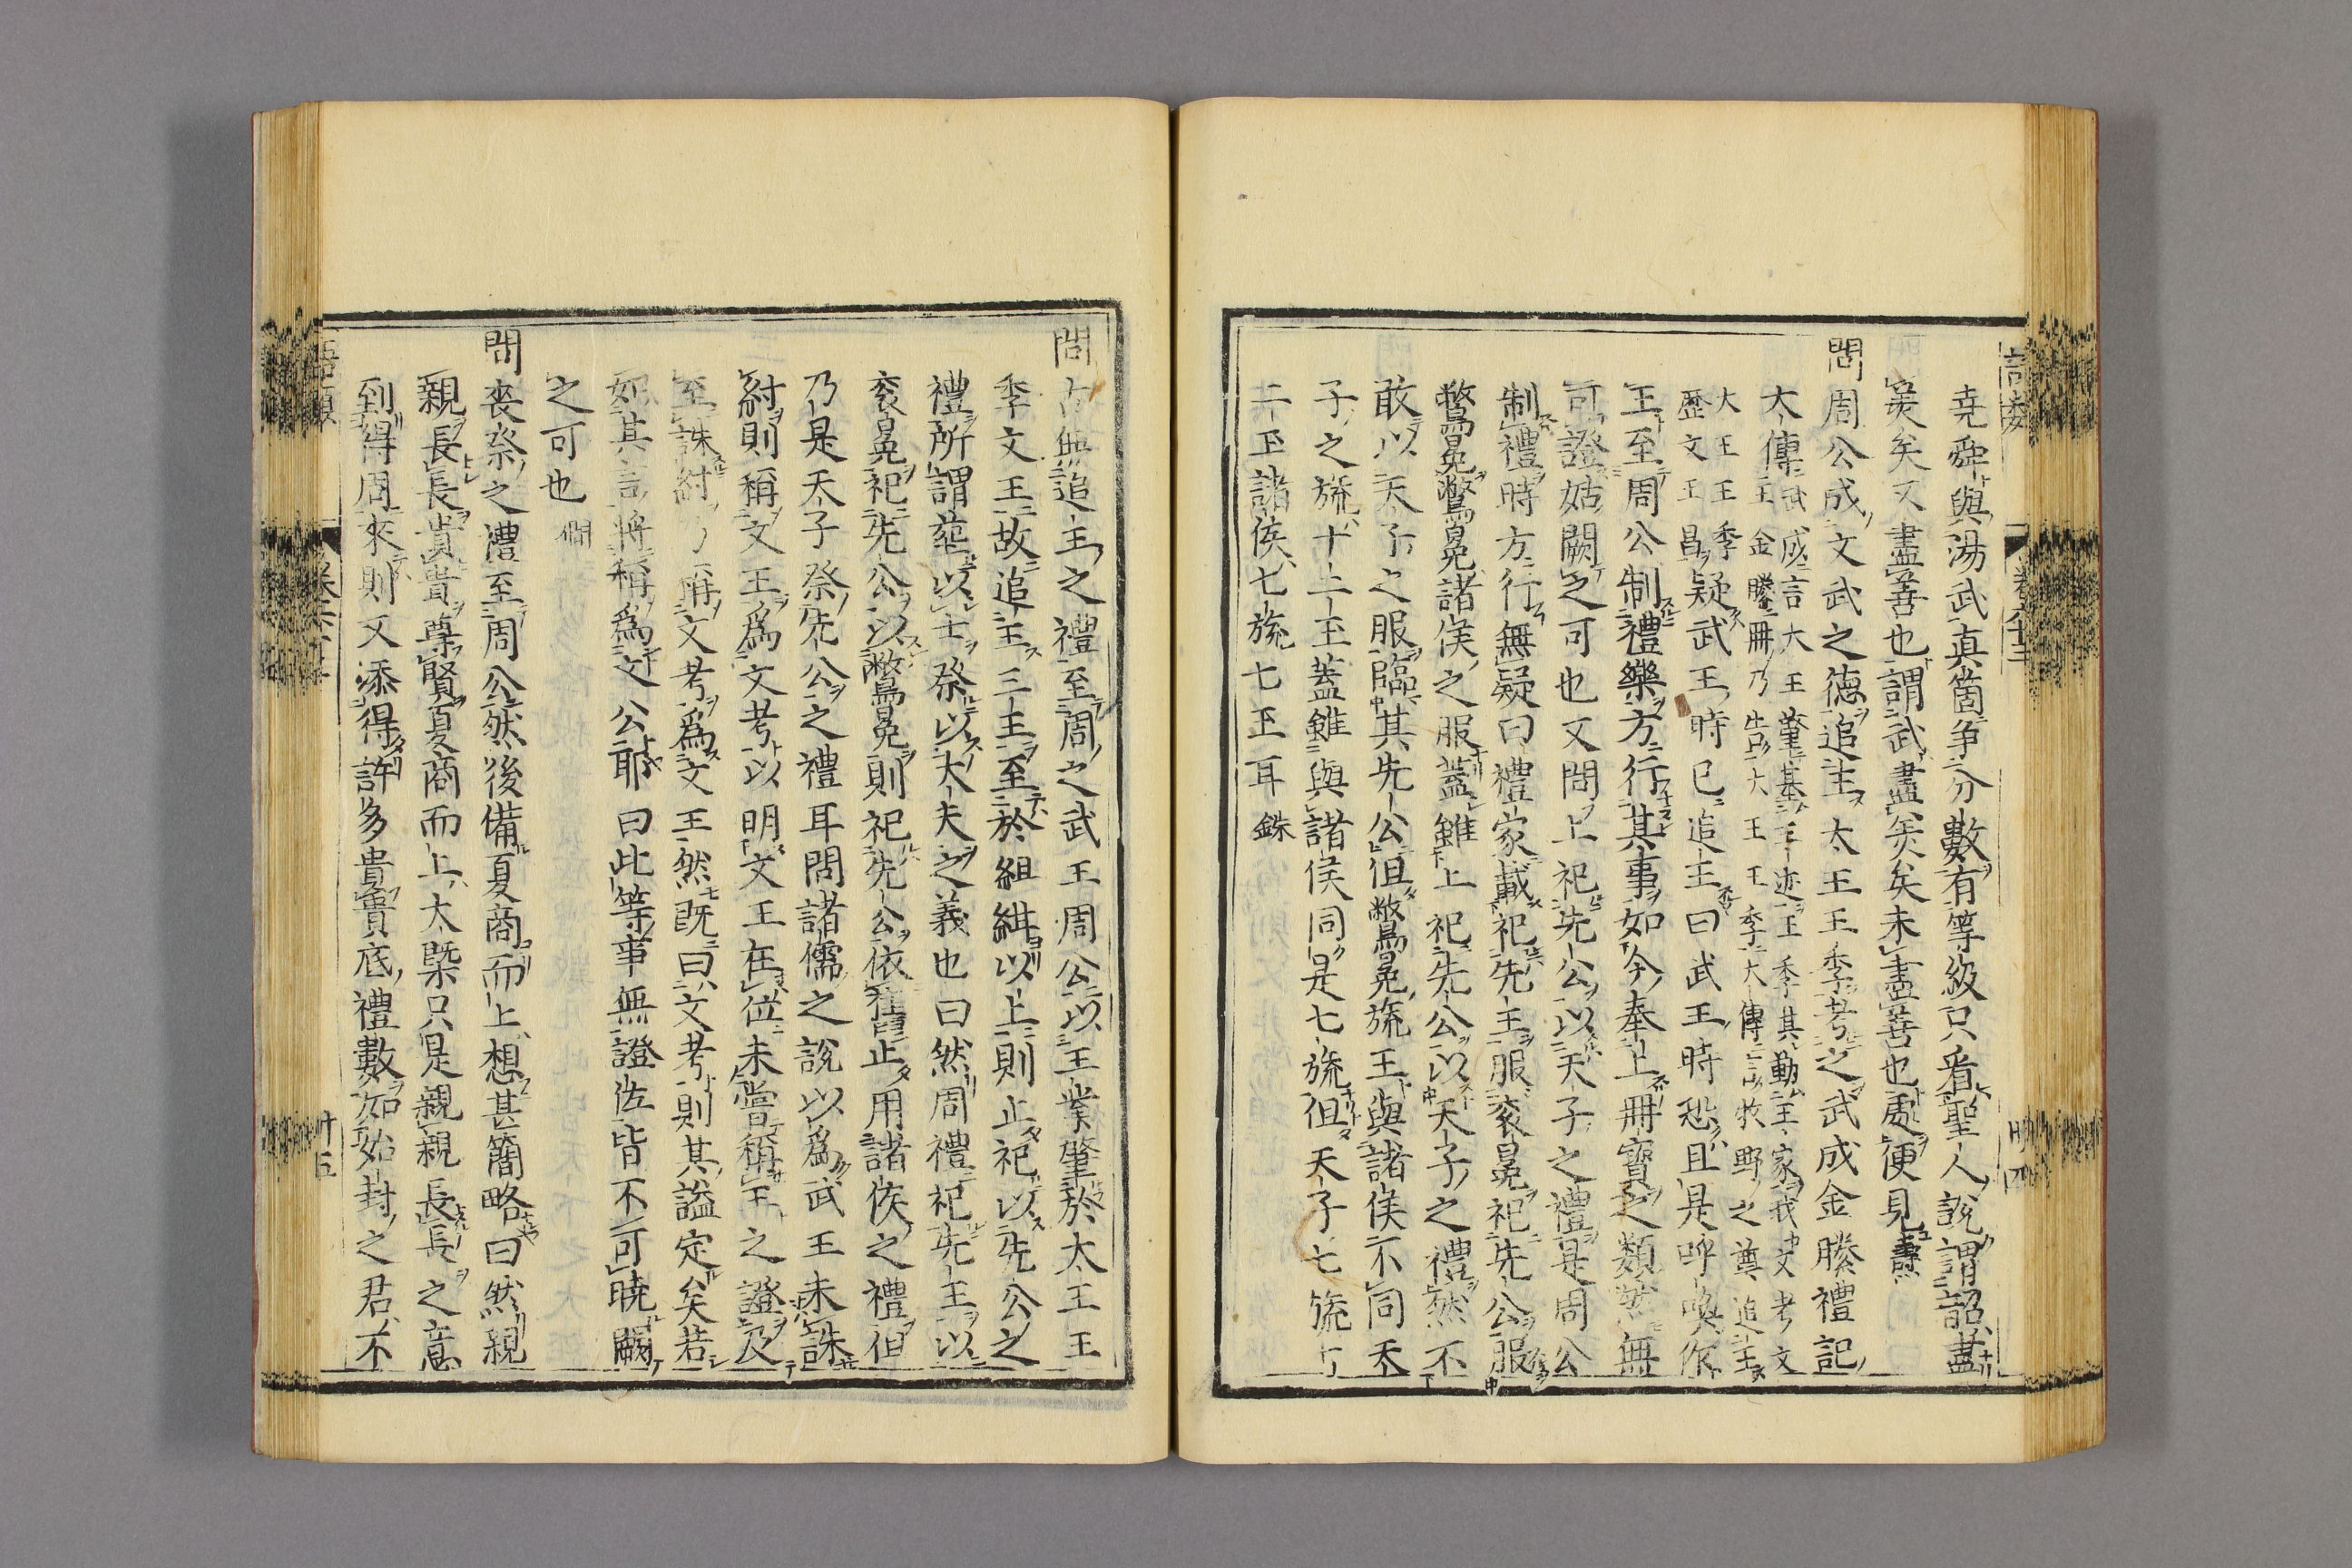 堯舜與湯武真箇争分數有等級只看聖人說謂韶盡
美矣又盡善也謂武盡美矣未盡善也處便見燾
問周公成文武之德追王太王王季考之武成金縢禮記
大傳武成言大王肇基王迹王季其勤王家我文考文
王金縢冊乃告大王王季大傳言牧野之奠追王
大王王季
歷文王昌疑武王時已追王曰武王時恐且是呼喚作
王至周公制禮樂方行其事如今奉上冊寶之類然無
可證姑闕之可也又問上祀先公以天子之禮是周公
制禮時方行無疑曰禮家載祀先王服衮冕祀先公服
鷩冕鷩冕諸侯之服蓋雖上祀先公以天子之禮然不
敢以天子之服臨其先公但鷩冕旒王與諸侯不同天
子之旒十二玉蓋雖與諸侯同是七旒但天子七旒十
二玉諸侯七旒七玉耳銖
問古無追王之禮至周之武王周公以王業肇於太王王
季文王故追王三王至於組紺以上則止祀以先公之
禮所謂葬以士祭以大夫之義也曰然周禮祀先王以
衮冕祀先公以鷩冕則祀先公依舊止用諸侯之禮但
乃是天子祭先公之禮耳問諸儒之說以爲武王未誅
紂則稱文王爲文考以明文王在位未嘗稱王之證及
至誅紂乃稱文考爲文王然既曰文考則其謚定矣若
如其言將稱爲文公耶曰此等事無證佐皆不可曉闕
之可也 僩
問喪祭之禮至周公然後備夏商而上想甚簡略曰然親
親長長貴貴尊賢夏商而上大槩只是親親長長之意
到得周來則又添得許多貴貴底禮數如始封之君不
語類 卷六十三 十五